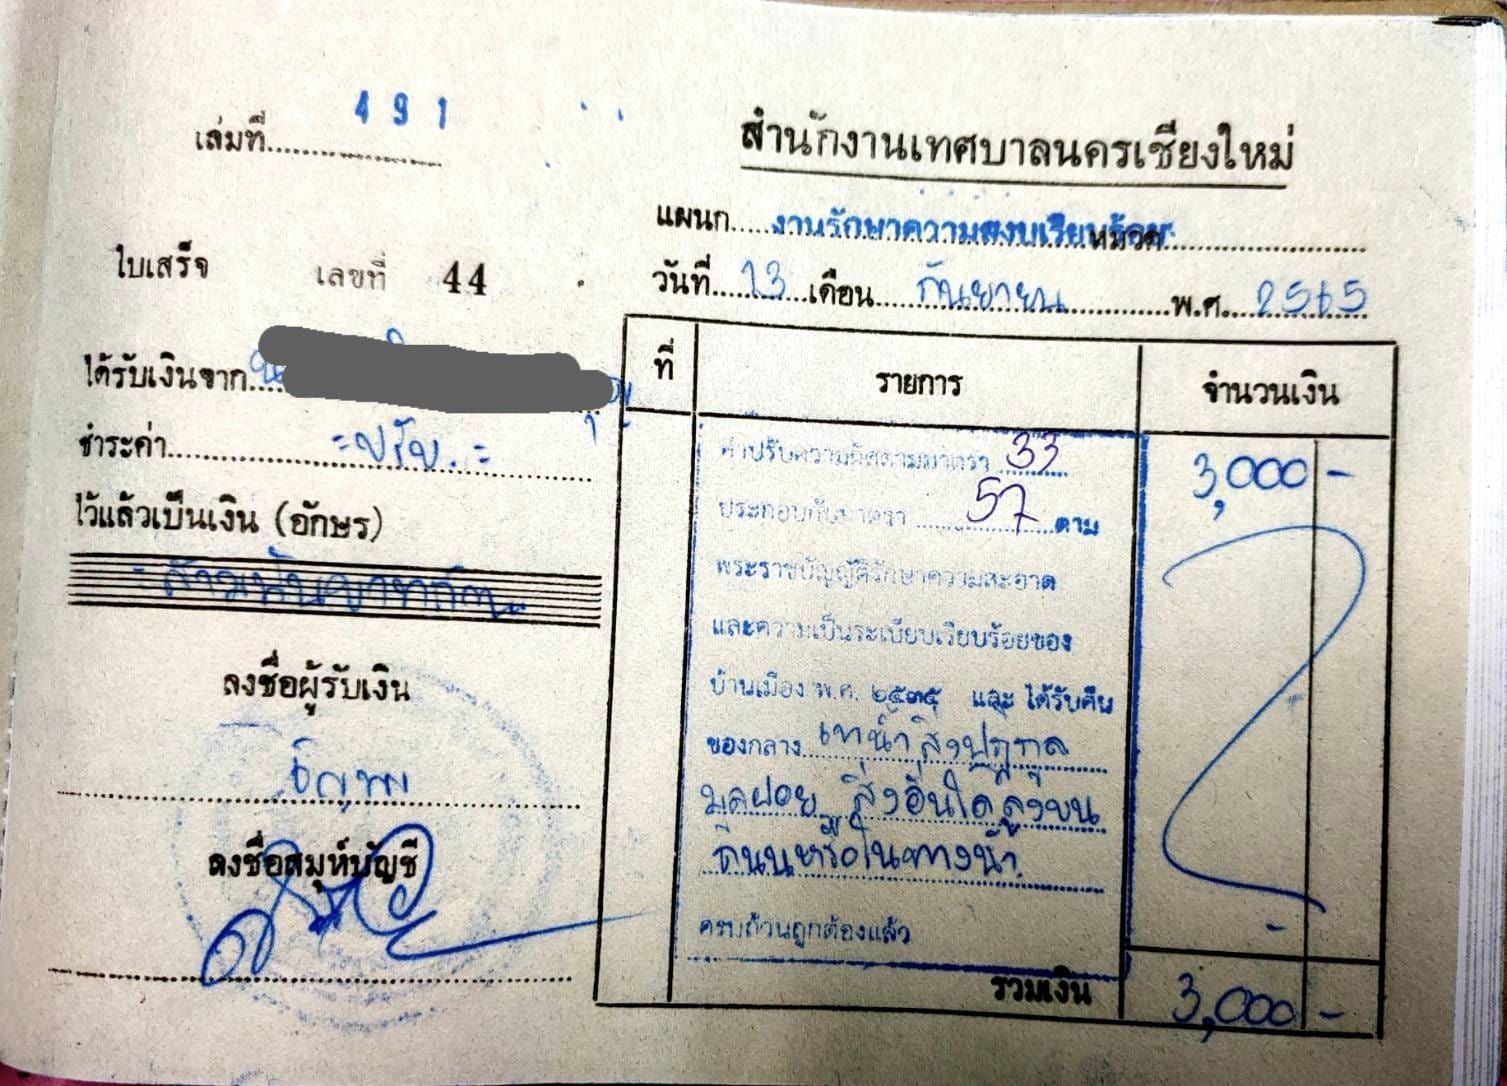 เล่มที่ 491
สำนักงานเทศบาลนครเชียงใหม่
แผนก งานรักษาความสงบเรียบร้อย หมวด
ใบเสร็จ เลขที่ 44
วันที่ 13 เดือน กันยายน พ.ศ. 2565
ได้รับเงินจาก
ชำระค่า =ปรับ.=
ไว้แล้วเป็นเงิน (อักษร)
- สามพันบาทถ้วน
ลงชื่อผู้รับเงิน
ลงชื่อสมุห์บัญชี
ที่ รายการ จำนวนเงิน
ค่าปรับความผิดตามมาตรา 33 3,000 -
ประกอบกับมาตรา 57 ตาม
พระราชบัญญัติรักษาความสะอาด
และความเป็นระเบียบเรียบร้อยของ
บ้านเมือง พ.ศ. ๒๕๓๕ และ ได้รับคืน
ของกลาง เทน้ำ สิ่งปฏิกูล
มูลฝอย สิ่งอื่นใดลงบน
ถนนหรือในทางน้ำ
ครบถ้วนถูกต้องแล้ว
รวมเงิน 3,000 -